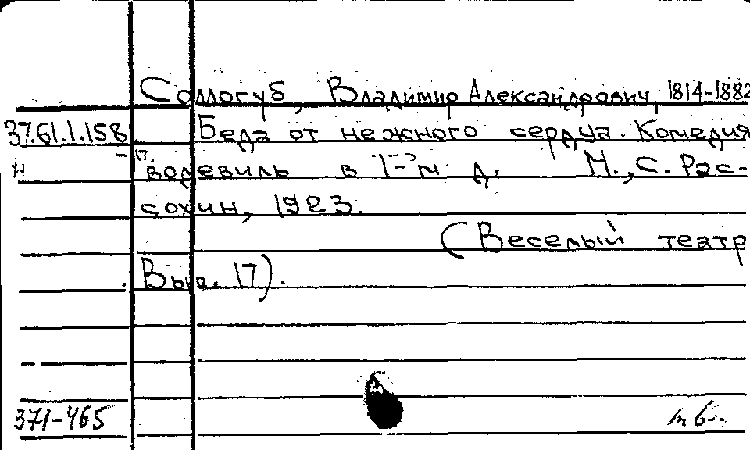 Соллогуб, Владимир Александрович, 1814-1882
37.61.1.158 Беда от нежного сердца. Комедия
- водевиль в 1-м д. М., С. Рас-
сохин, 1923.
(Веселый театр
Вып. 17).
371-465